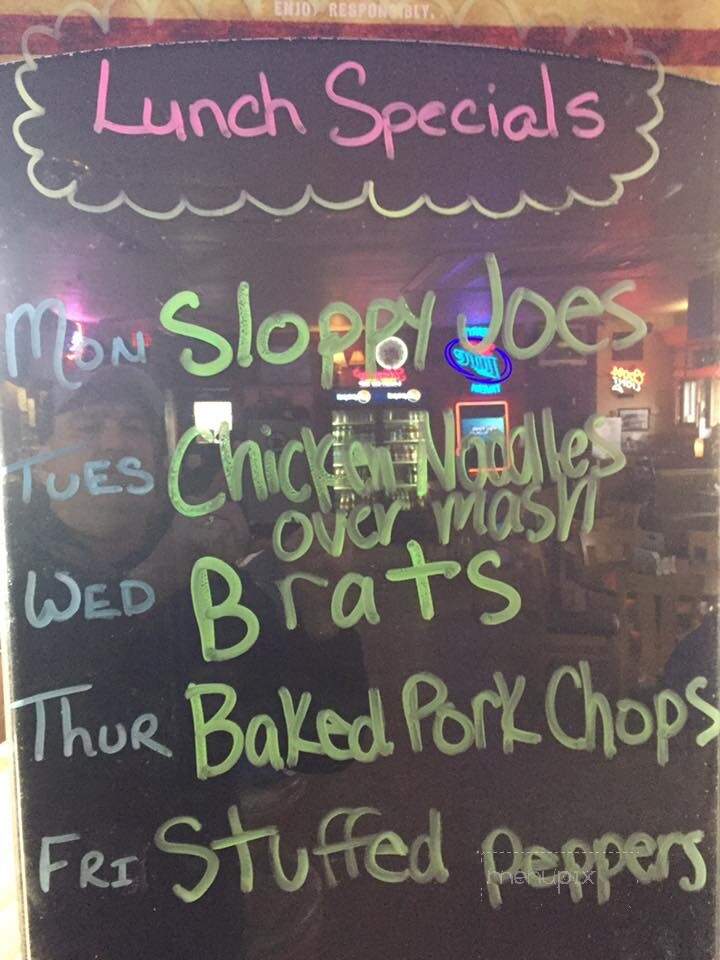 ENJOY RESPONSIBLY.
Lunch Specials
MON Sloppy Joes
TUES Chicken Noodles
over mash
WED Brats
THUR Baked Pork Chops
FRI Stuffed Peppers
menupix